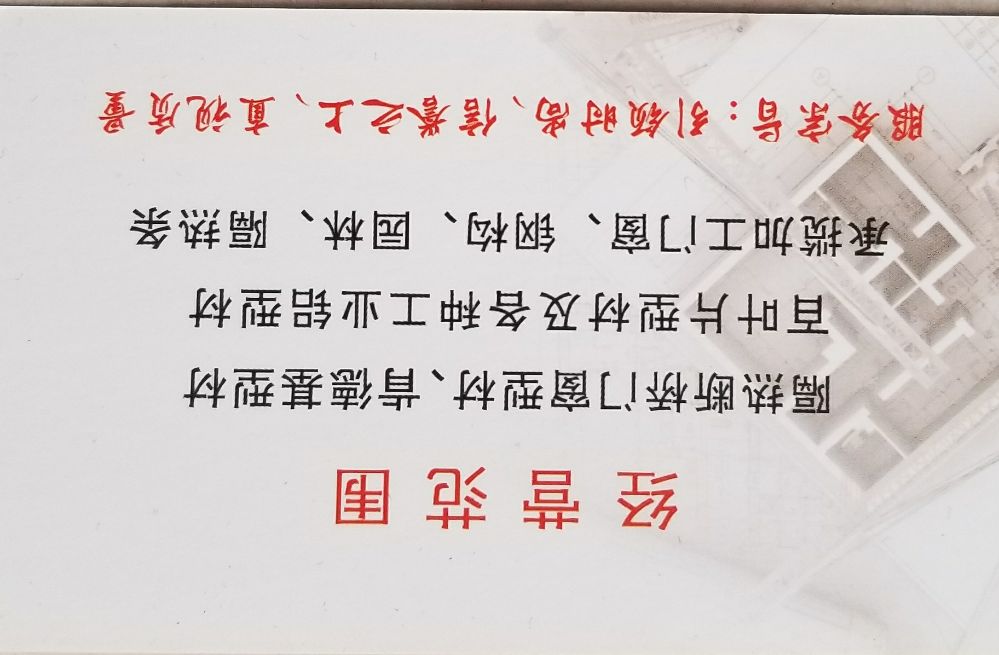 经营范围
隔热断桥门窗型材、肯德基型材
百叶片型材及各种工业铝型材
承揽加工门窗、钢构、园林、隔热条
服务宗旨：引领时尚、信誉之上、直视质量